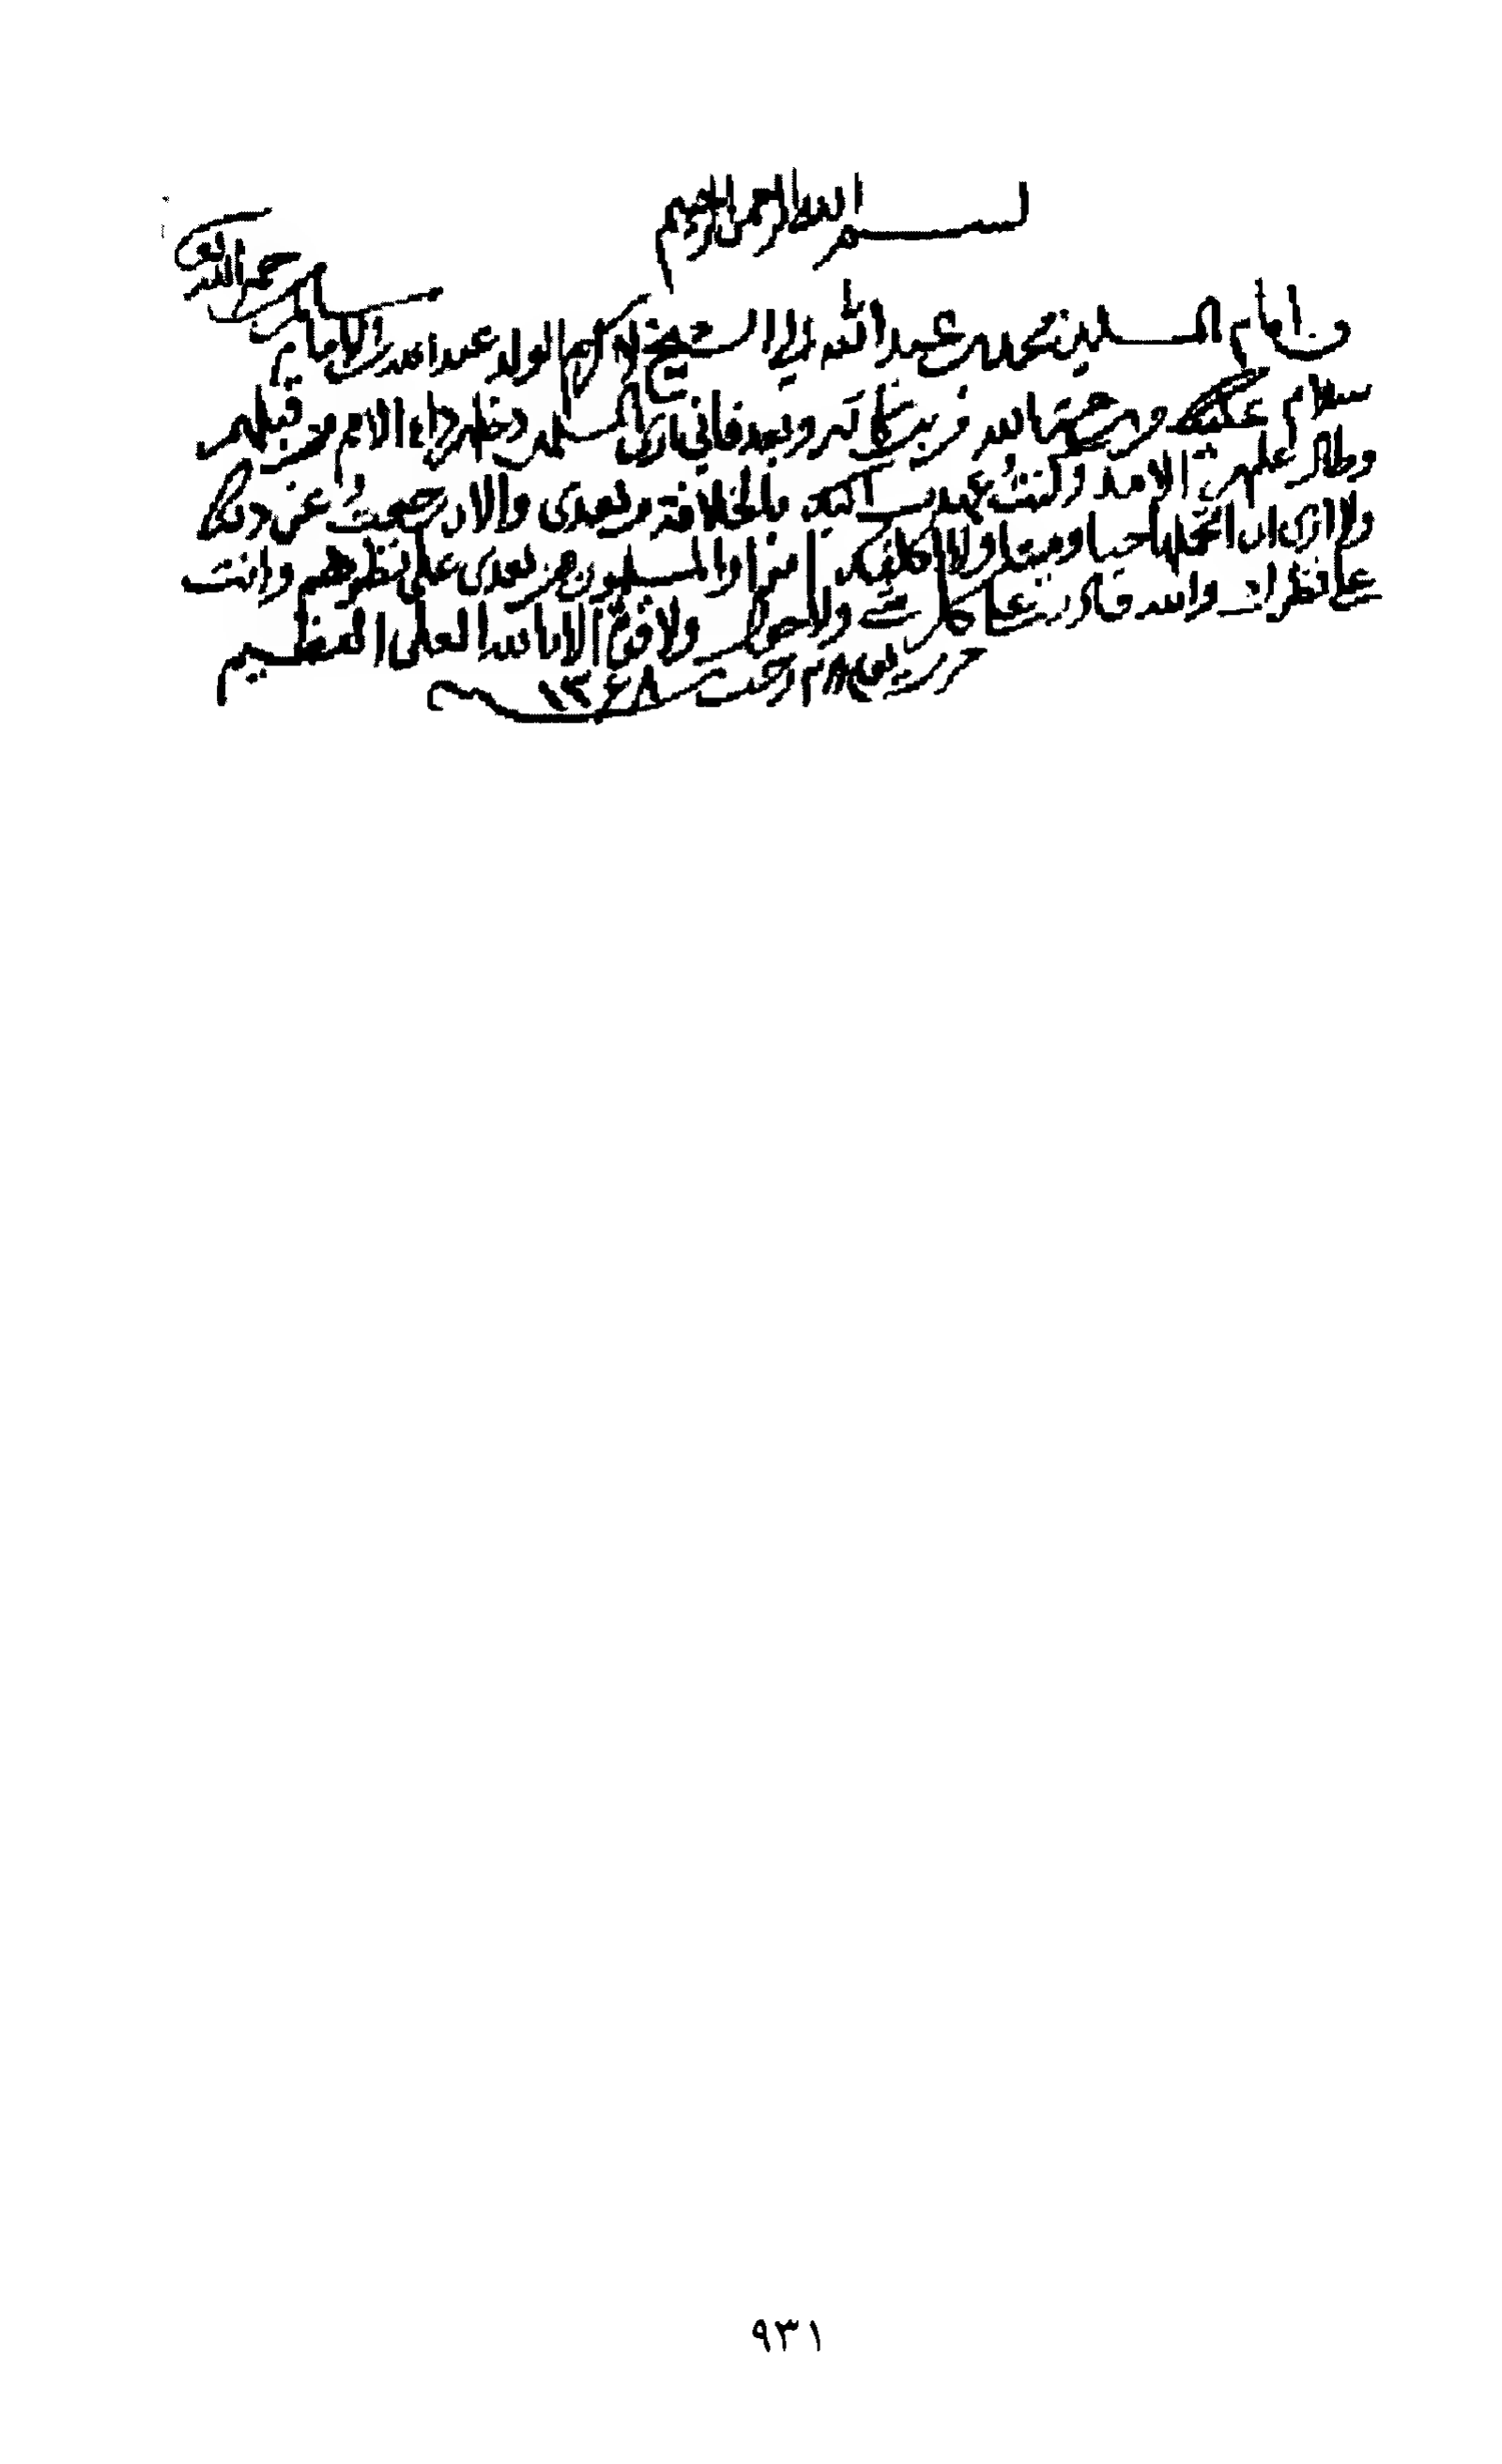 بسم الله الرحمن الرحيم
من امام المسلمين محمد بن عبدالله الى الشيخ الولد عبدالله بن الامام سالم رحمه الله
سلام عليك ورحمة الله وبركاته وبعد فاني ارى المسلمين دخلهم داء الامم من قبلهم
وطال عليهم الامد وكنت بالخلافة من بعدي والان رجعت عن ذلك
ولا ارى ان اتحملها حيا وميتا ولا اكلفك امرا والمسلمون من بعدي على نظرهم وانت
على نظرك والله قادر على كل شيء ولا حول ولا قوة الا بالله العلي العظيم
حرر يوم ٢٨ رجب ١٣٦٨
٩٣١